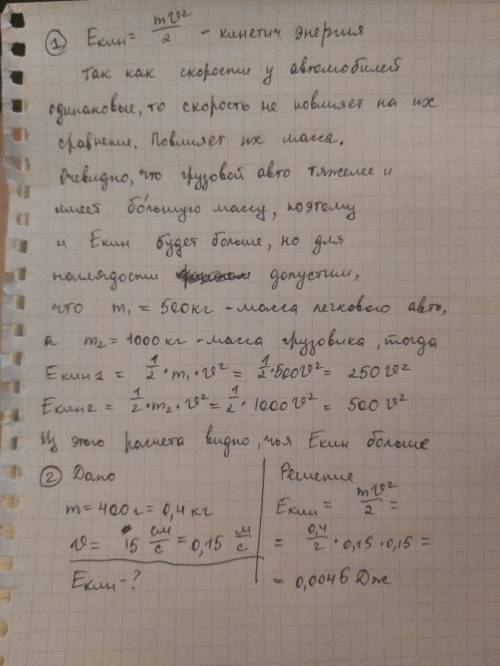 ① Eкин = mv²/2 - кинетич. энергия
Так как скорости у автомобилей
одинаковые, то скорость не повлияет на их
сравнение. Повлияет их масса.
Очевидно, что грузовой авто тяжелее и
имеет бо́льшую массу, поэтому
и Eкин будет больше, но для
наглядости допустим,
что m₁ = 500кг - масса легкового авто,
а m₂ = 1000 кг - масса грузовика, тогда
Eкин1 = 1/2 · m₁ · v² = 1/2 · 500v² = 250v²
Eкин2 = 1/2 · m₂ · v² = 1/2 · 1000v² = 500v²
Из этого расчета видно, чья Eкин больше
② Дано
m = 400г = 0,4 кг
v = 15 см/с = 0,15 м/с
Eкин - ?
Решение
Eкин = mv²/2 =
= 0,4/2 · 0,15 · 0,15 =
= 0,0046 Дж